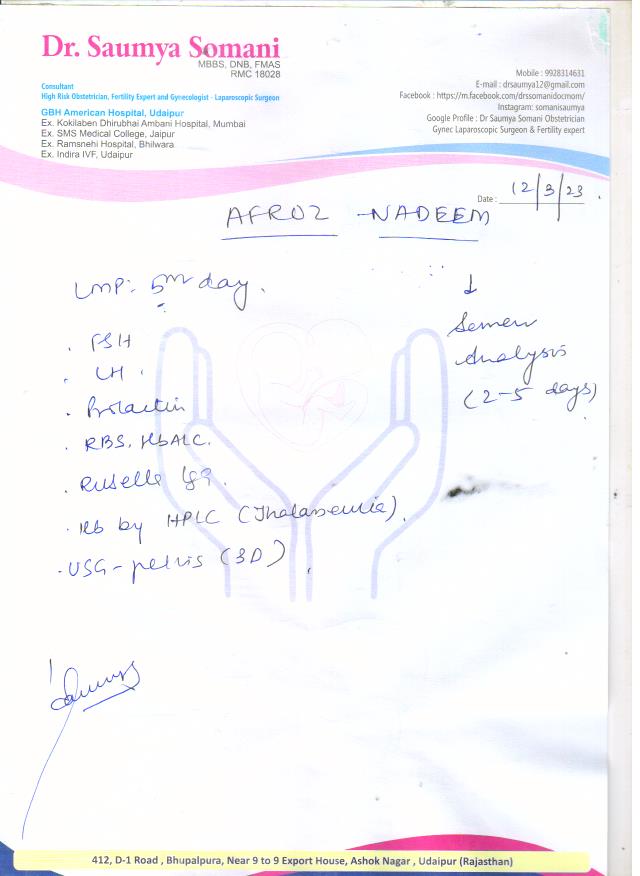 Dr. Saumya Somani
MBBS, DNB, FMAS
RMC 18028
Consultant
High Risk Obstetrician, Fertility Expert and Gynecologist - Laparoscopic Surgeon
GBH American Hospital, Udaipur
Ex. Kokilaben Dhirubhai Ambani Hospital, Mumbai
Ex. SMS Medical College, Jaipur
Ex. Ramsnehi Hospital, Bhilwara
Ex. Indira IVF, Udaipur
Mobile : 9928314631
E-mail : drsaumya12@gmail.com
Facebook : https://m.facebook.com/drssomanidocmom/
Instagram: somanisaumya
Google Profile : Dr Saumya Somani Obstetrician
Gynec Laparoscopic Surgeon & Fertility expert
Date : 12/3/23
AFROZ - NADEEM
LMP: 5th day.
. FSH
. LH .
. Prolactin
. RBS, HbA1C.
. Rubella IgG.
. Hb by HPLC (Thalassemia).
. USG - pelvis (3D)
↓
Semen
Analysis
(2-5 days)
Saumya
412, D-1 Road , Bhupalpura, Near 9 to 9 Export House, Ashok Nagar , Udaipur (Rajasthan)